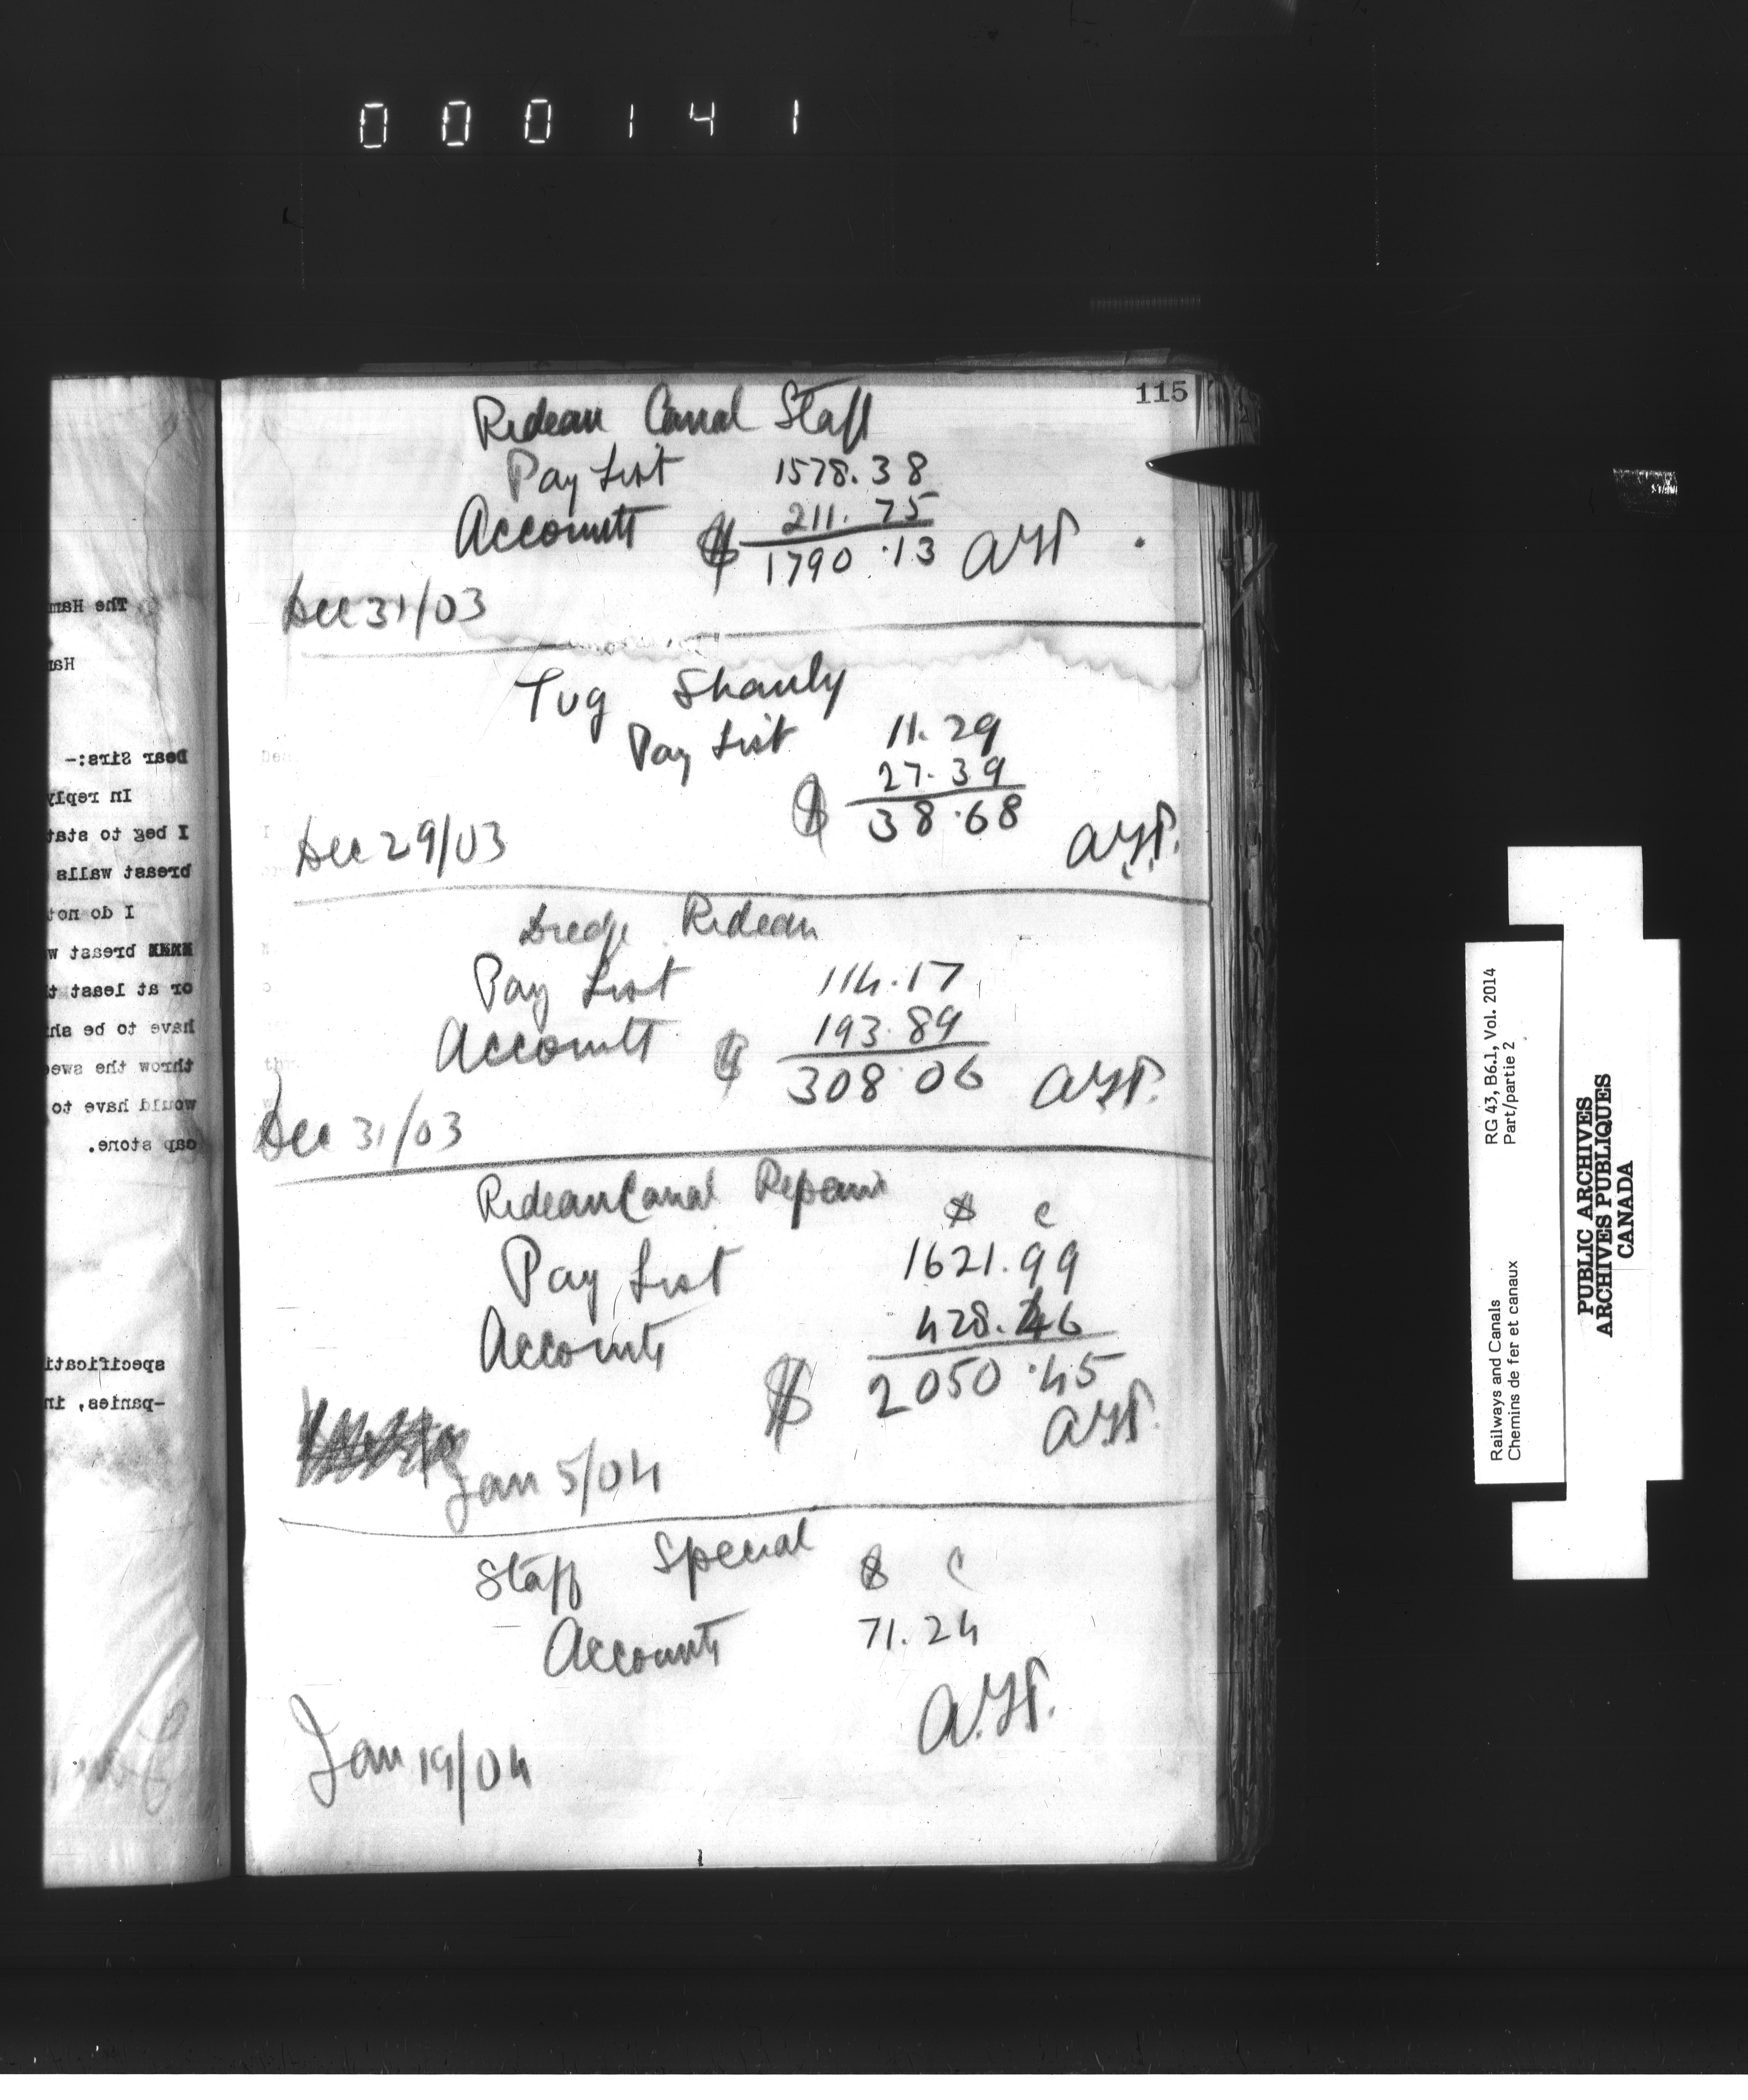 000141
115
Rideau Canal Staff
Pay List 1578.38
Accounts 211.75
$ 1790.13 A.T.P.
Dec 31/03
Tug Shanly
Pay List 11.29
27.39
$ 38.68
Dec 29/03 A.T.P.
Dredge Rideau
Pay List 114.17
Accounts 193.89
$ 308.06 A.T.P.
Dec 31/03
Rideau Canal Repairs
$ c
Pay List 1621.99
Accounts 428.46
$ 2050.45
A.T.P.
Jan 5/04
Staff Special $ c
Accounts 71.24
A.T.P.
Jan 19/04
The Ham
Ha
Dear Sirs:-
In reply
I beg to stat
breast walls
I do not
breast w
or at least t
have to be sh
throw the swe
would have to
cap stone.
specificati
-panies, in
RG 43, B6.1, Vol. 2014
Part/partie 2
Railways and Canals
Chemins de fer et canaux
PUBLIC ARCHIVES
ARCHIVES PUBLIQUES
CANADA